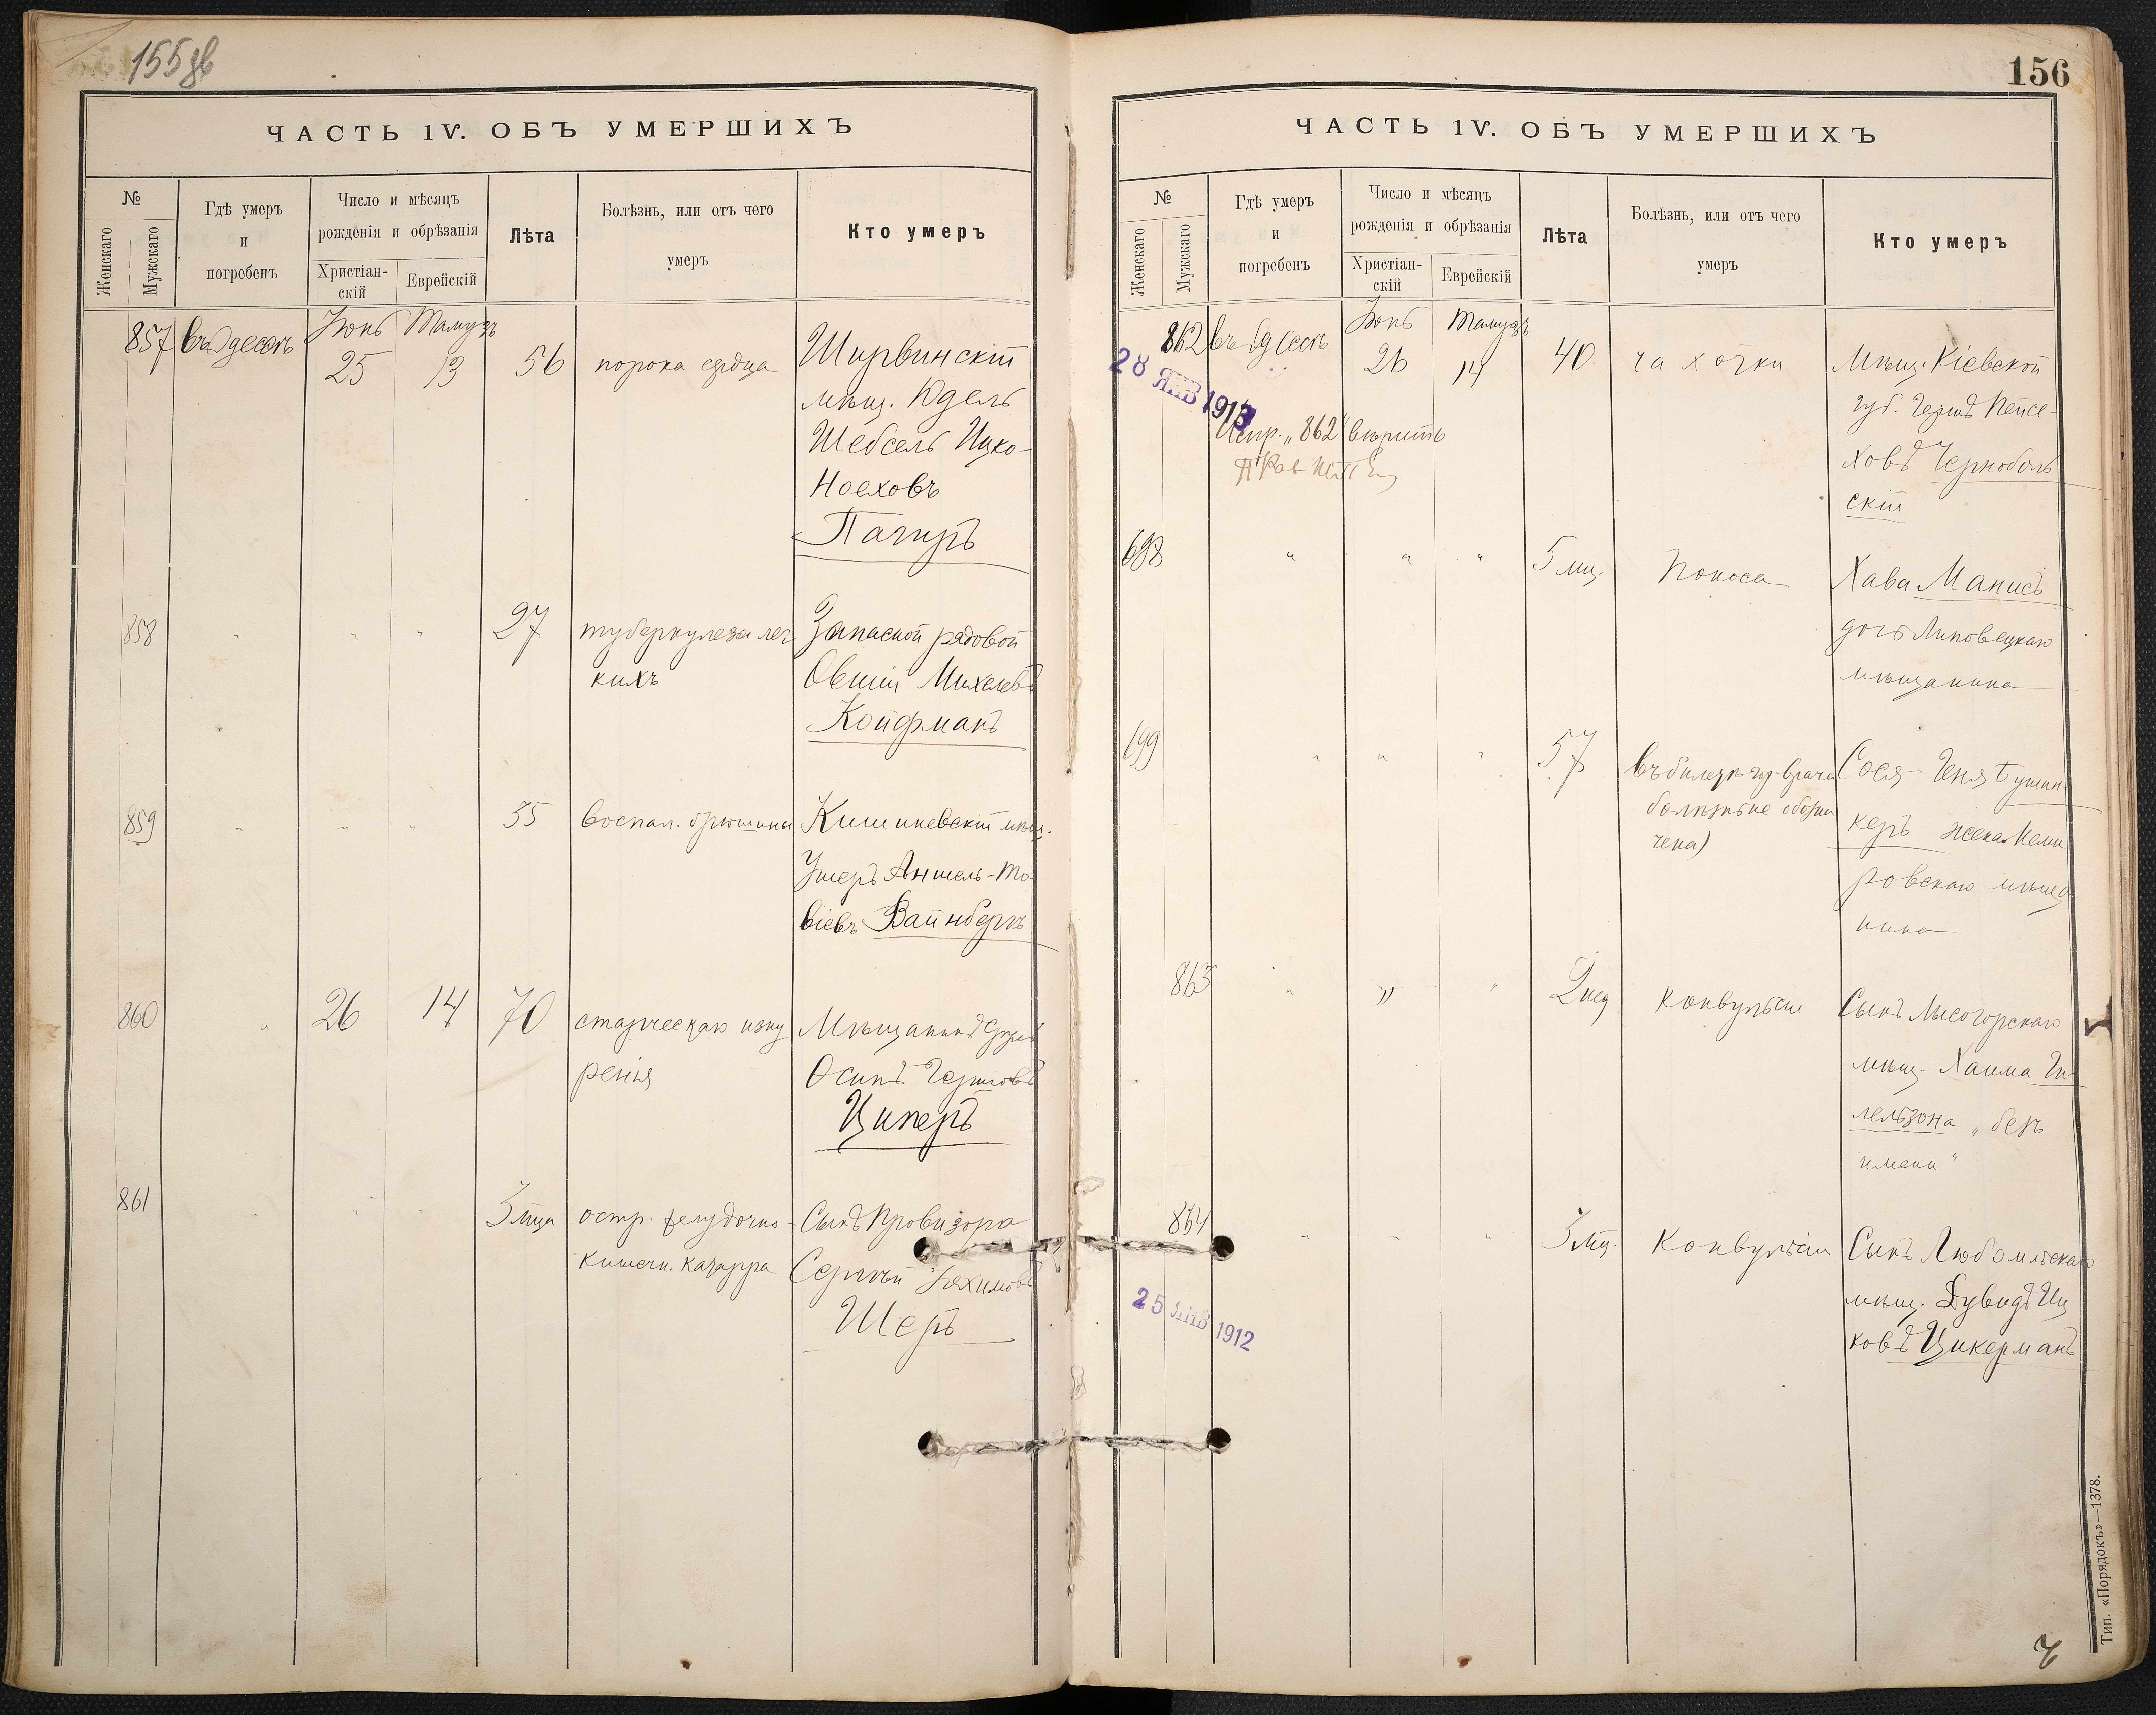 155 об
ЧАСТЬ IV. ОБЪ УМЕРШИХЪ
№
Женскаго
Мужскаго
Гдѣ умеръ
и
погребенъ
Число и мѣсяцъ
рожденія и обрѣзанія
Христіан-
скій
Еврейскій
Лѣта
Болѣзнь, или отъ чего
умеръ
Кто умеръ
857 въ Одессѣ Іюнь Тамузъ
25 13 56 порока сердца Ширвинскій
мѣщ. Юдель
Шебсель Ицко-
Ноеховъ
Пачиръ
858 " " " 27 туберкулеза лег
кихъ
Запасной рядовой
Овшій Михелевъ
Койфманъ
859 " " " 55 воспал. брюшины Кишиневскій мѣщ.
Ушеръ Аншель-То-
віевъ Вайнбергъ
860 " 26 14 70 старческаго изну
ренія
Мѣщанинъ
Осипъ Герцовъ
Циперъ
861 " " " 3 мца остр. желудочно-
кишечн. катарра
Сынъ Провизора
Сергѣй
Шеръ
156
ЧАСТЬ IV. ОБЪ УМЕРШИХЪ
№
Женскаго
Мужскаго
Гдѣ умеръ
и
погребенъ
Число и мѣсяцъ
рожденія и обрѣзанія
Христіан-
скій
Еврейскій
Лѣта
Болѣзнь, или отъ чего
умеръ
Кто умеръ
862 въ Одессѣ Іюнь Тамузъ
26 14 40 чахотки Мѣщ. Кіевской
губ. Гершъ Пейсе-
ховъ Чернобыль
скій
28 ЯНВ 1913
Испр. „862" вѣрить
698 " " " 5 мц. поноса Хава Манисъ
дочь Липовецкаго
мѣщанина
699 " " " 57 въ билетѣ гор. врача
болѣзнь не обозна
чена)
Сося-Геня Бушин
керъ жена Неми
ровскаго мѣща
нина
863 " " " 2 нед конвульсіи Сынъ Лысогорскаго
мѣщ. Хаима Ги-
лельзона „безъ
имени"
864 " " " 3 мц. Конвульсіи Сынъ Любомльскаго
мѣщ. Дувидъ Иц
ковъ Цикерманъ
25 ЯНВ 1912
Тип. «Порядокъ»—1378.